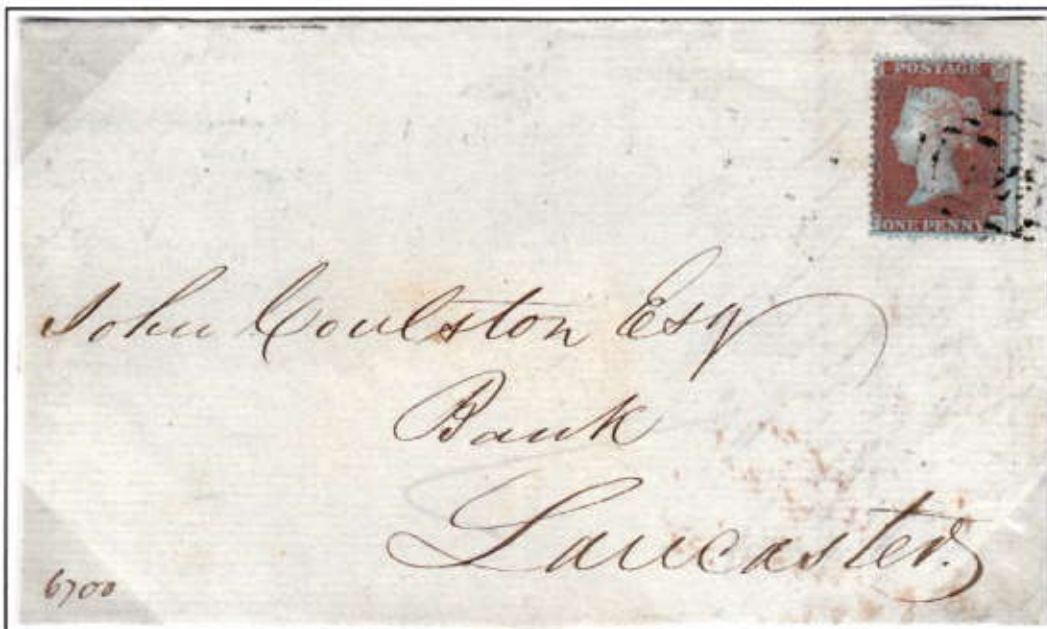 POSTAGE
ONE PENNY
John Coulston Esq
Bank
Lancaster.
6700